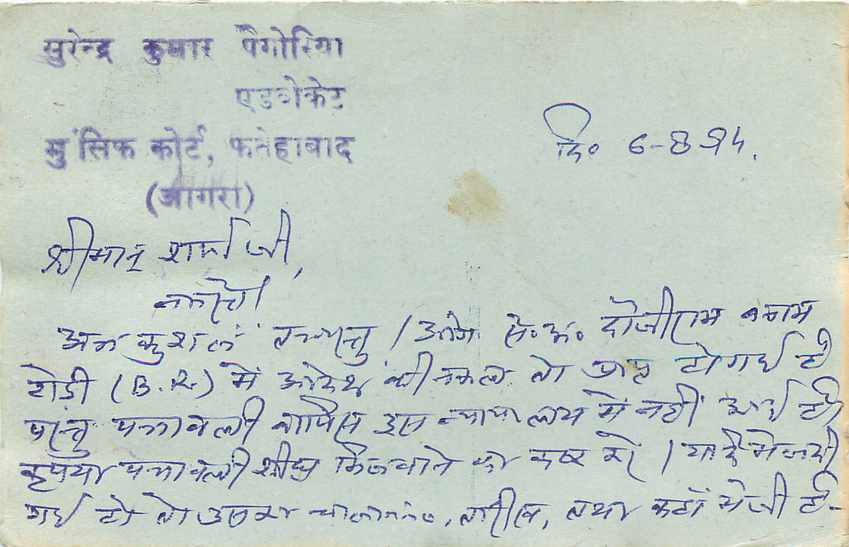 सुरेन्द्र कुमार पैगोरिया
एडवोकेट
मुंसिफ कोर्ट, फतेहाबाद
(आगरा)
दि० 6-8-94.
श्रीमान् शर्मा जी,
नमस्ते।
अत्र कुशलं तत्रास्तु। दौजीराम बनाम
टोडी (B.R.) में आदेश की नकल तो प्राप्त हो गई है
परन्तु पत्रावली वापिस इस न्यायालय में नहीं आई है।
कृपया पत्रावली शीघ्र भिजवाने का कष्ट करें। यदि भेज दी
गई हो तो उसका तारीख, तथा कहाँ भेजी है-